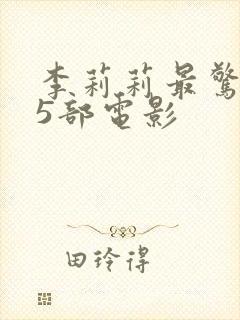 李莉莉最驚
5部電影
田玲得